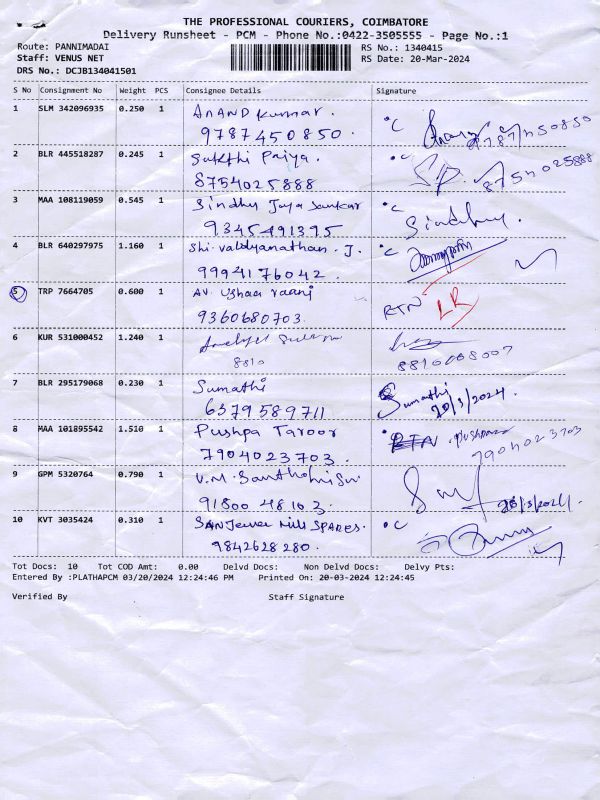 THE PROFESSIONAL COURIERS, COIMBATORE
Delivery Runsheet - PCM - Phone No.:0422-3505555 - Page No.:1
Route: PANNIMADAI RS No.: 1340415
Staff: VENUS NET RS Date: 20-Mar-2024
DRS No.: DCJB134041501
S No Consignment No Weight PCS Consignee Details Signature
1 SLM 342096935 0.250 1 Anand Kumar.
9787450850. 9787450850
2 BLR 445518287 0.245 1 Sakthi Priya. S.P.
8754025888 8754025888
3 MAA 108119059 0.545 1 Sindhu Jaya Sankar
9345491395 Sindhu.
4 BLR 640297975 1.160 1 Shi. Vaidyanathan. J.
9994176042.
5 TRP 7664705 0.600 1 AV. Ushaa raani RTN LR
9360680703.
6 KUR 531000452 1.240 1
8810 8810668007
7 BLR 295179068 0.230 1 Sumathi Sumathi
6379589711 20/3/2024.
8 MAA 101895542 1.510 1 Pushpa Taroor RTN
7904023703 7904023703
9 GPM 5320764 0.790 1 V.M.
91800 48103
10 KVT 3035424 0.310 1 Mill SPARES.
9842628280.
Tot Docs: 10 Tot COD Amt: 0.00 Delvd Docs: Non Delvd Docs: Delvy Pts:
Entered By :PLATHAPCM 03/20/2024 12:24:46 PM Printed On: 20-03-2024 12:24:45
Verified By Staff Signature